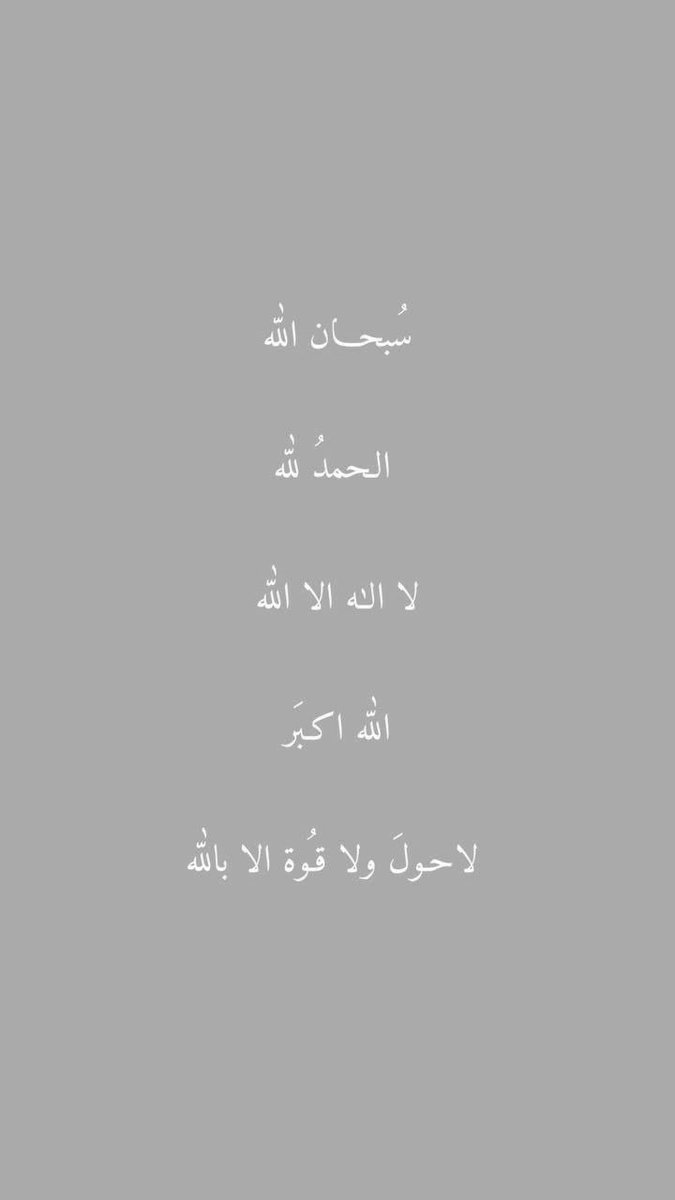 سُبحـــان الله
الـحمدُ لله
لا الـٰه الا الله
الله اكـبَر
لاحـولَ ولا قـُوة الا بالله